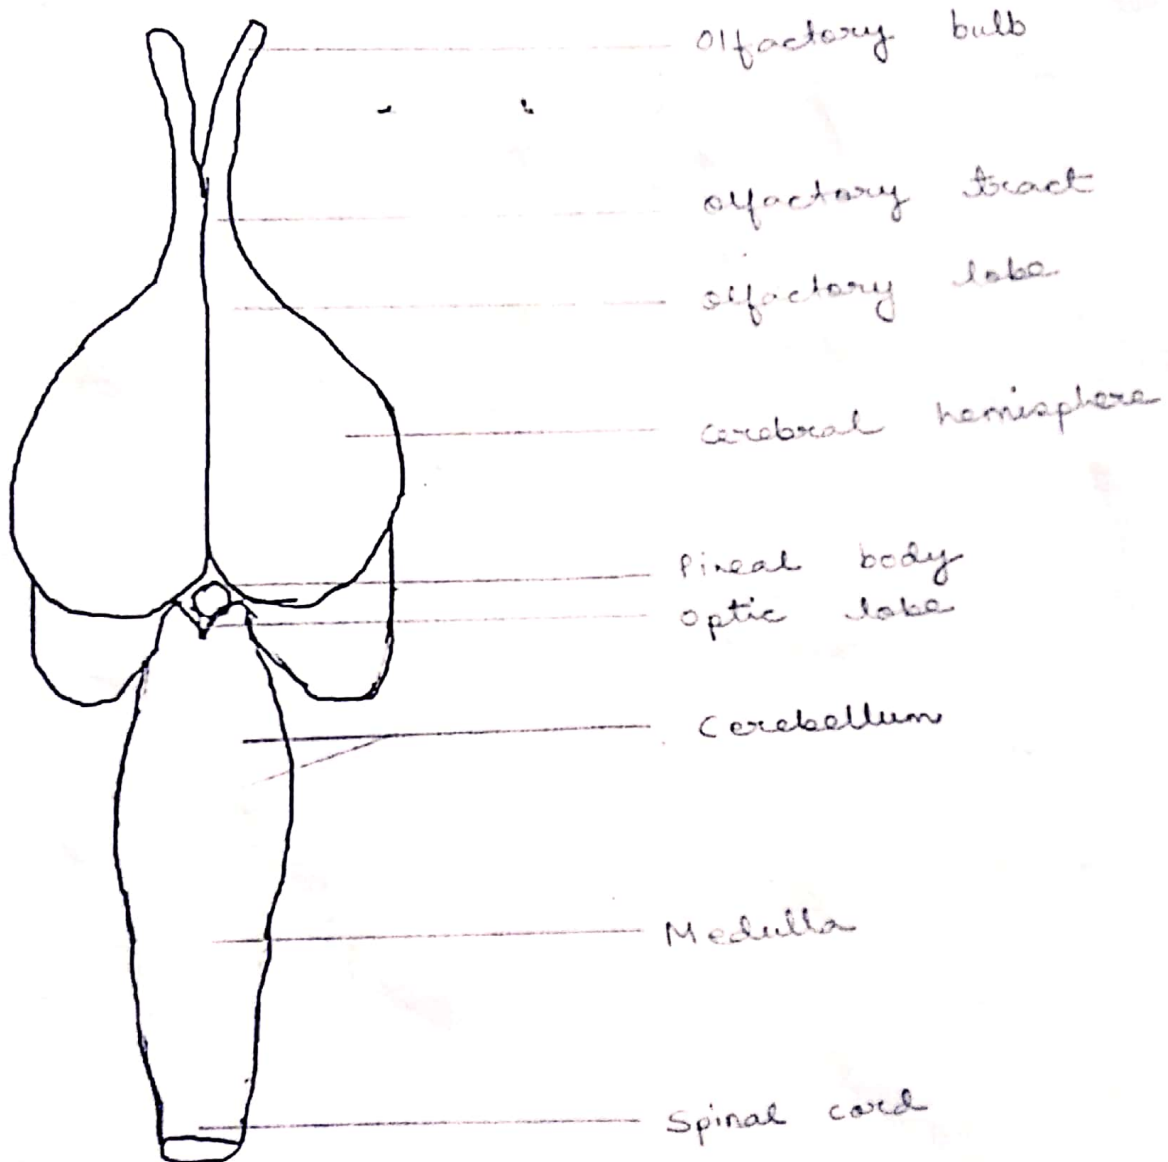 Olfactory bulb
olfactory tract
olfactory lobe
cerebral hemisphere
Pineal body
optic lobe
Cerebellum
Medulla
Spinal cord